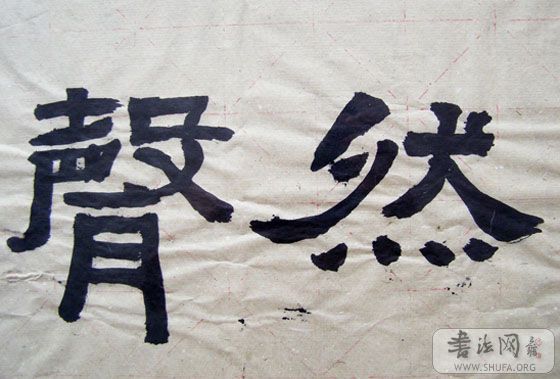 聲然
書法网
WWW.SHUFA.ORG